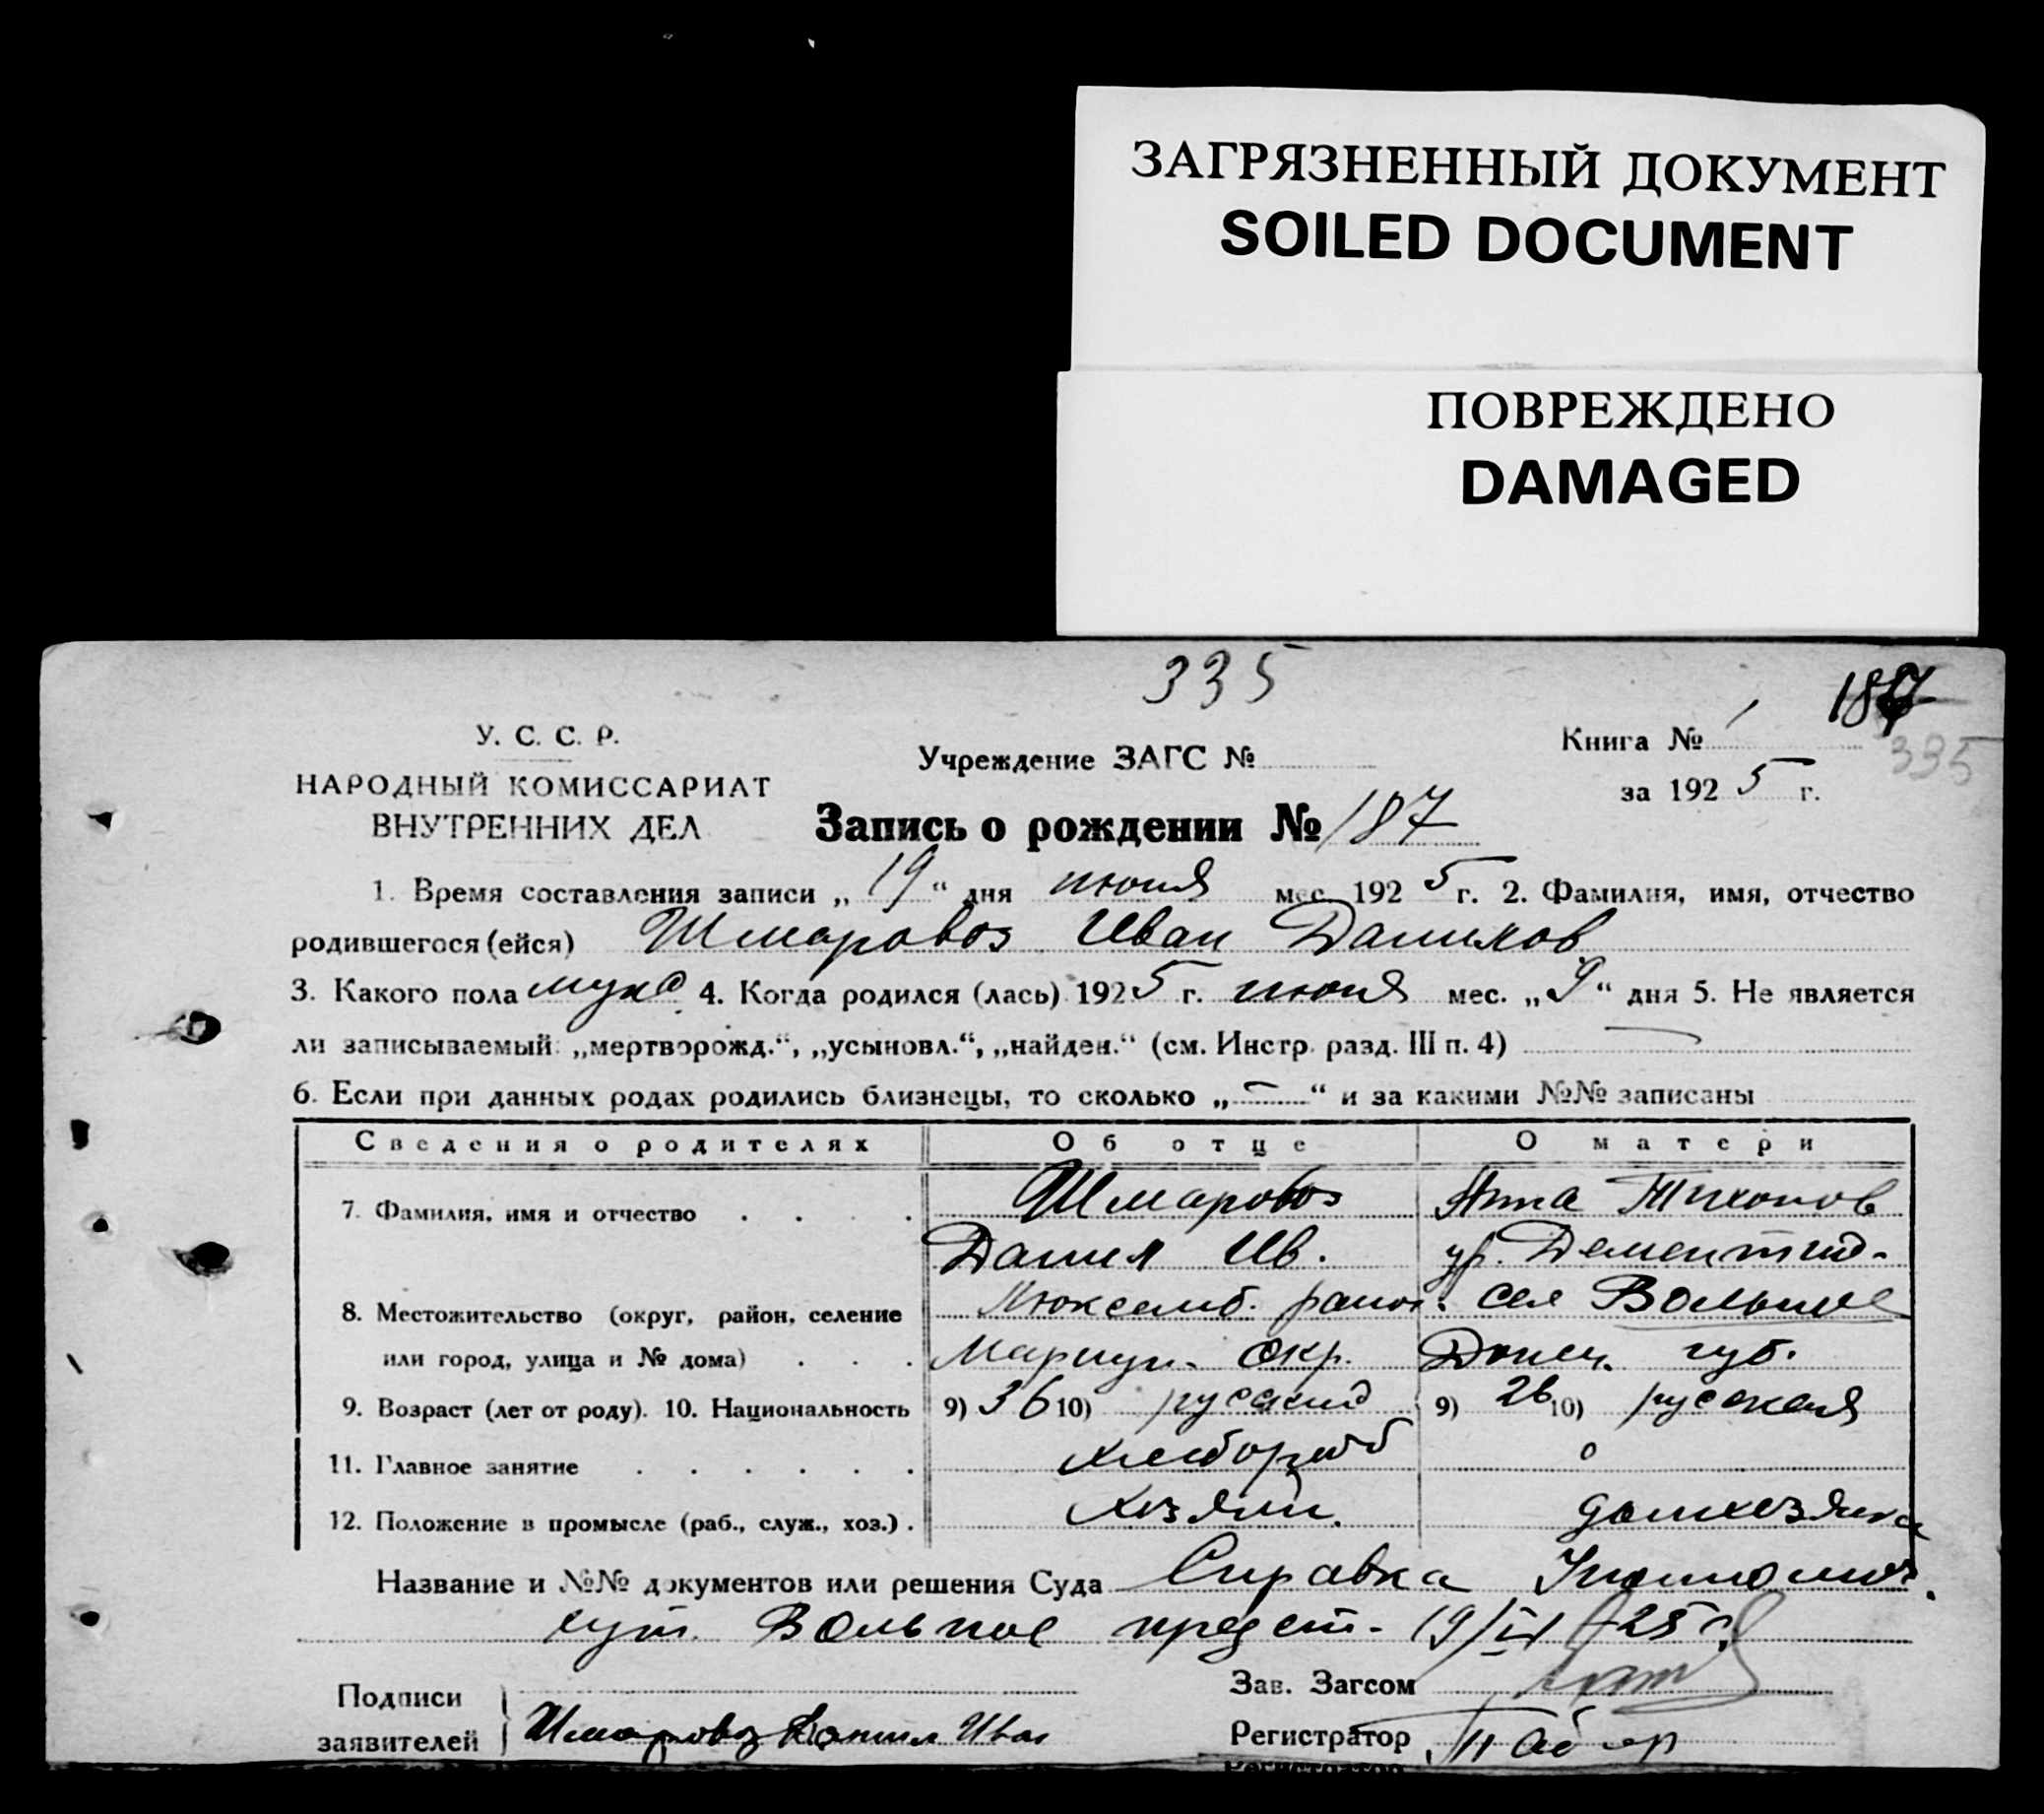 ЗАГРЯЗНЕННЫЙ ДОКУМЕНТ
SOILED DOCUMENT
ПОВРЕЖДЕНО
DAMAGED
335
187
335
У. С. С. Р.
НАРОДНЫЙ КОМИССАРИАТ
ВНУТРЕННИХ ДЕЛ
Учреждение ЗАГС №
Книга № 1
за 1925 г.
Запись о рождении № 187
1. Время составления записи „19“ дня июня мес. 1925 г. 2. Фамилия, имя, отчество
родившегося (ейся) Шмаровоз Иван Данилов
3. Какого пола муж 4. Когда родился (лась) 1925 г. июня мес. „9“ дня 5. Не является
ли записываемый: „мертворожд.“, „усыновл.“, „найден.“ (см. Инстр. разд. III п. 4) —
6. Если при данных родах родились близнецы, то сколько „—“ и за какими №№ записаны
Сведения о родителях Об отце О матери
7. Фамилия, имя и отчество . . . . Шмаровоз Анна Тихонов
Данил Ив. ур.
8. Местожительство (округ, район, селение район. сел Вольное
или город, улица и № дома) . . . Мариуп. окр. Донец. губ.
9. Возраст (лет от роду). 10. Национальность 9) 36 10) русский 9) 26 10) русская
11. Главное занятие . . . . . . хлебороб
12. Положение в промысле (раб., служ., хоз.) . хозяин. домхозяйка
Название и №№ документов или решения Суда Справка
хут. Вольное предст. 19/VI 25 г.
Подписи
заявителей Шмаровоз Данил Иван
Зав. Загсом
Регистратор
Регистратор